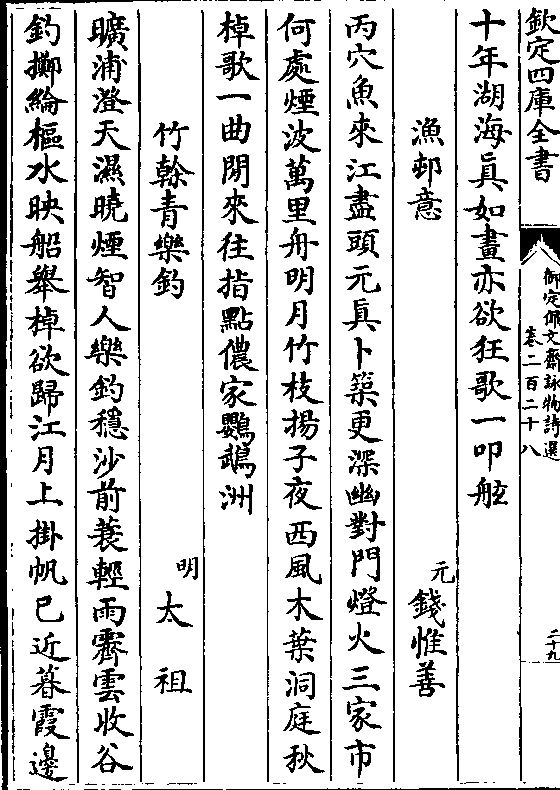 欽定四庫全書
御定佩文齋詠物詩選
卷二百二十八
二十九
十年湖海真如畫亦欲狂歌一叩舷
漁邨意
元 錢惟善
丙穴魚來江盡頭元真卜築更深幽對門燈火三家市
何處煙波萬里舟明月竹枝揚子夜西風木葉洞庭秋
棹歌一曲閒來往指點儂家鸚鵡洲
竹榦青樂釣
明 太祖
曠浦澄天濕曉煙智人樂釣穩沙前蓑輕雨霽雲收谷
釣擲綸樞水映船舉棹欲歸江月上掛帆已近暮霞邊